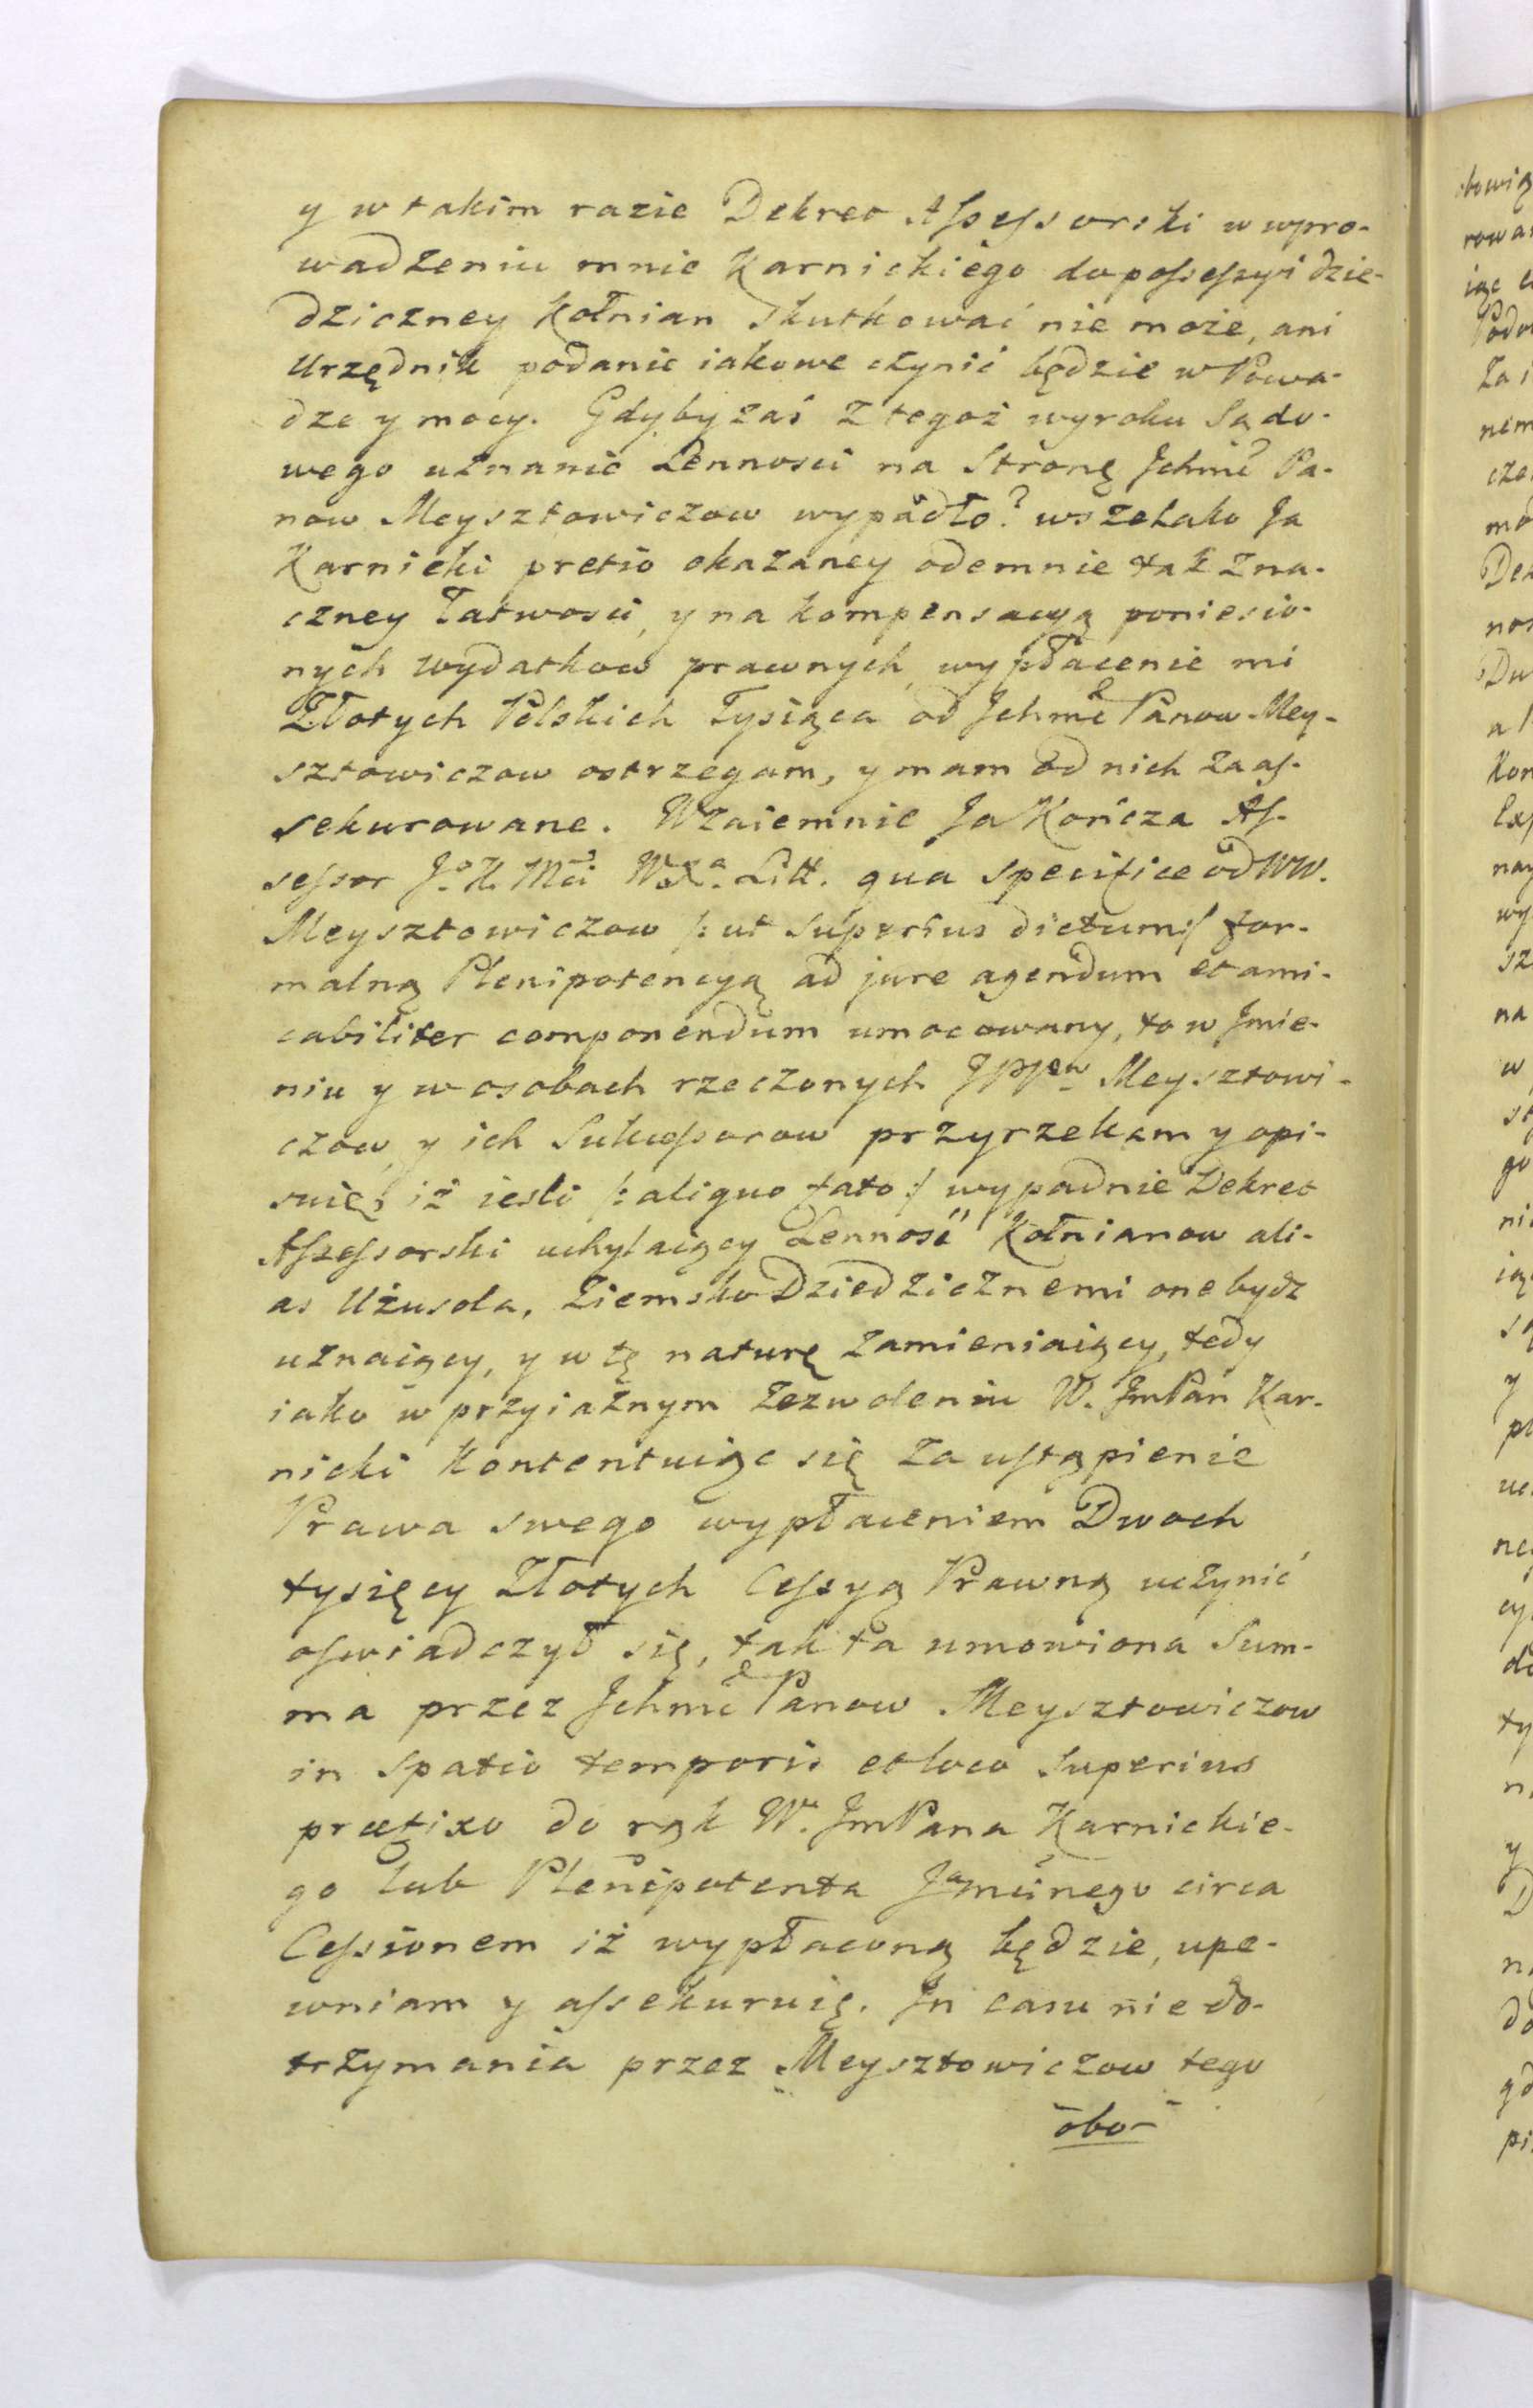 y w takim razie Dekret Assessorski w wpro-
wadzeniu mnie Karnickiego do possessyi dzie-
dziczney Kołnian skutkować nie może, ani
Urzędnik podanie iakowe czynić będzie w Powa-
dze y mocy. Gdyby zaś z tegoż wyroku Sądo-
wego uznanie Lennosci na Stronę Jchmć Pa-
now Meysztowiczow wypadło? wszelako Ja
Karnicki pretio okazaney odemnie tak zna-
czney łatwosci, y na kompensacyą poniesio-
nych wydatkow prawnych, wypłacenie mi
Złotych Polskich Tysiąca od Jchmć Panow Mey-
sztowiczow ostrzegam, y mam od nich zaas-
sekurowane. Wzaiemnie Ja Kończa As-
sessor J. K. Mci W. X. Litt. qua specifice od WW.
Meysztowiczow /: ut superius dictum :/ for-
malną Plenipotencyą ad jure agendum et ami-
cabiliter componendum umocowany, to w Jmie-
niu y w osobach rzeczonych JPPow Meysztowi-
czow, y ich Sukcessorow przyrzekam y opi-
suię, iż iesli /: aliquo fato :/ wypadnie Dekret
Assessorski uchylaiący Lenność Kołnianow ali-
as Użusola, Ziemsko Dziedzicznemi one bydz
uznaiący, y w tę naturę zamieniaiący, tedy
iako w przyiaznym zezwoleniu W. JmPan Kar-
nicki kontentuiąc się za ustąpienie
Prawa swego wypłaceniem Dwoch
tysięcy Złotych Cessyą Prawną uczynić
oswiadczył się, tak ta umowiona Sum-
ma przez Jchmć Panow Meysztowiczow
in spatio temporis et loco superius
præfixo do rąk W. JmPana Karnickie-
go lub Plenipotenta Jmcinego circa
Cessionem iż wypłaconą będzie, upe-
wniam y assekuruię. In casu niedo-
trzymania przez Meysztowiczow tego
obo-